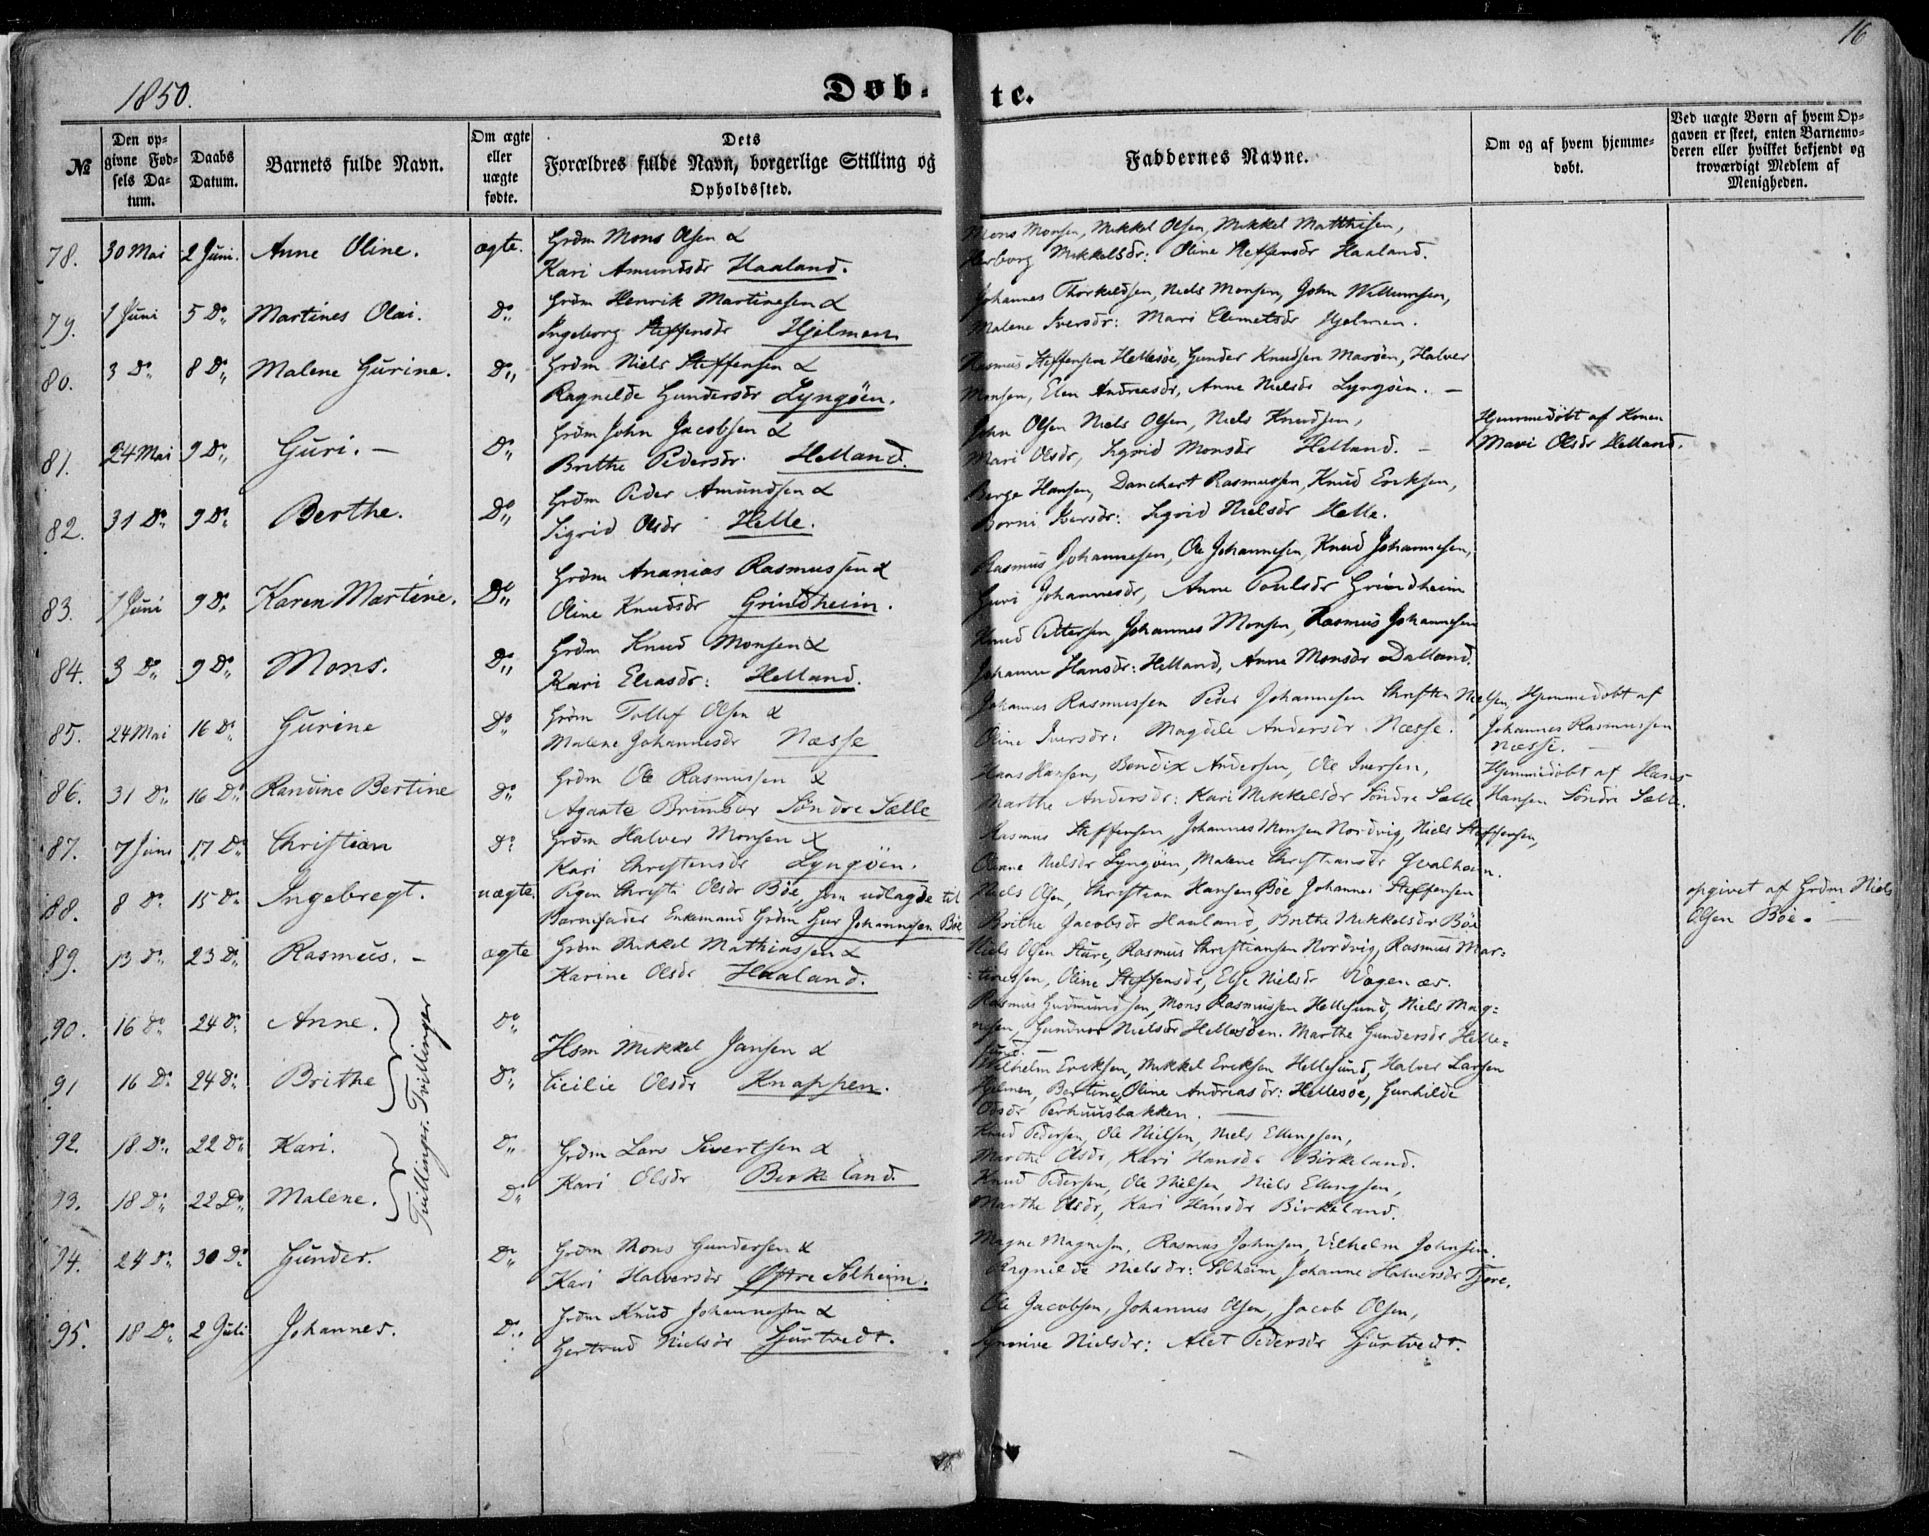 16
1850.
Døb- te.
№
Den opgivne Fødsels Datum.
Daabs Datum.
Barnets fulde Navn.
Om ægte eller uægte fødte.
Dets Forældres fulde Navn, borgerlige Stilling og Opholdssted.
Faddernes Navne.
Om og af hvem hjemmedøbt.
Ved uægte Børn af hvem Opgaven er skeet, enten Barnemoderen eller hvilket bekjendt og troværdigt Medlem af Menigheden.
78. 30 Mai 2 Juni. Anne Oline. ægte. Grdm Mons Olsen &
Kari Amundsdr Haaland.
Mons Monsen, Mikkel Olsen, Mikkel Matthisen,
Herborg Mikkelsdr: Oline Steffensdr Haaland.
79. 1 Juni 5 Do Martines Olai. Do Grdm Henrik Martinesen &
Ingeborg Steffensdr Hjelmen
Johannes Thorkeldsen, Niels Monsen, John Willumsen,
Malene Iversdr: Mari Clemetsdr Hjelmen.
80. 3 Do 8 Do Malene Gurine. Do Grdm Niels Steffensen &
Ragnilde Gundersdr Lyngöen.
Rasmus Steffensen Hellesöe, Gunder Knudsen Maröen, Halver
Monsen, Elen Andreasdr, Anne Nielsdr Lyngöen. —
81. 24 Mai 9 Do Guri. — Do Grdm John Jacobsen &
Brithe Pedersdr. Helland.
John Olsen Niels Olsen, Niels Knudsen,
Mari Olsdr, Sigrid Monsdr Helland. —
Hjemmedöbt af Konen
Mari Olsdr Helland.
82. 31 Do 9 Do Berthe. Do Grdm Peder Amundsen &
Sigrid Olsdr Helle.
Berge Hansen, Danchert Rasmussen, Knud Ericksen,
Borni Iversdr: Sigrid Nielsdr Helle.
83. 1 Juni 9 Do Karen Martine. Do Grdm Ananias Rasmussen &
Oline Knudsdr Grindheim.
Rasmus Johannesen, Ole Johannesen, Knud Johannesen,
Guri Johannesdr, Anne Poulsdr Grindheim
84. 3 Do 9 Do Mons. Do Grdm Knud Monsen &
Kari Eliasdr: Helland.
Knud Pettersen Johannes Monsen, Rasmus Johannesen
Johanne Hansdr: Helland, Anne Monsdr Dalland.
85. 24 Mai 16 Do Gurine Do Grdm Tollef Olsen &
Malene Johannesdr Næsse
Johannes Rasmussen Peder Johannesen Christen Nielsen,
Oline Iversdr: Magdele Andersdr Næsse.
Hjemmedöbt af
Johannes Rasmussen
Næsse. —
86. 31 Do 16 Do Randine Bertine Do Grdm Ole Rasmussen &
Agaate Brumbor Söndre Sælle
Hans Hansen, Bendix Andersen, Ole Iversen,
Marthe Andersdr: Kari Mikkelsdr Söndre Sælle
Hjemmedöbt af Hans
Hansen Söndre Sælle.
87. 7 Juni 17 Do Christian Do Grdm Halver Monsen &
Kari Christensdr Lyngöen.
Rasmus Steffensen, Johannes Monsen Nordvig, Niels Steffensen,
Oliane Nielsdr Lyngöen, Malene Christiansdr Qvalheim.
88. 8 Do 15 Do Ingebregt. uægte. Pigen Christi Olsdr Böe, som udlagde til
Barnefader Enkemand Grdm Giur Johannesen Böe
Niels Olsen, Christian Hansen Böe Johannes Steffensen
Brithe Jacobsdr Haaland, Brithe Mikkelsdr Böe
opgivet af Grdm Niels
Olsen Böe. —
89. 13 Do 23 Do Rasmus. — ægte Grdm Mikkel Mathiassen &
Karine Olsdr Haaland.
Niels Olsen Sture, Rasmus Christiansen Nordvig, Rasmus Mar-
tinesen, Oline Steffensdr, Else Nielsdr Vaagenæs.
90. 16 Do 24 Do Anne. Do
Rasmus Gudmundsen, Mons Rasmussen Hellesund, Niels Mag-
nesen, Gundvor Nielsdr Hellesöen. Marthe Gundersdr Helle-
sund. —
Tvillinger
Hsm Mikkel Jansen &
Cicilie Olsdr Knappen.
91 16 Do 24 Do Brithe Do
Wilhelm Ericksen, Mikkel Ericksen Hellesund, Halver Larsen
Hjelmen, Bertine Oline Andreasdr: Hellesöe, Gunhilde
Olsdr Perhuusbakken. —
92. 18 Do 22 Do Kari. Do Grdm Lars Sivertsen &
Kari Olsdr Birkeland.
Knud Pedersen, Ole Nielsen, Niels Ellingsen,
Marthe Olsdr, Kari Hansdr Birkeland.
Tvillinger.
93. 18 Do 22 Do Malene. Do
Knud Pedersen, Ole Nielsen, Niels Ellingsen,
Marthe Olsdr, Kari Hansdr Birkeland.
94. 24 Do 30 Do Gunder. Do Grdm Mons Gundersen &
Kari Halversdr Östre Solheim.
Magne Magnesen, Rasmus Johnsen, Vilhelm Johnsen.
Ragnilde Nielsdr: Solheim, Johanne Halversdr Tjore.
95. 18 Do 2 Juli Johannes. Do Grdm Knud Johannesen &
Gertrud Nielsdr Hjurtvedt.
Ole Jacobsen, Johannes Olsen, Jacob Olsen,
Nielsdr: Alet Pedersdr Hjurtvedt.